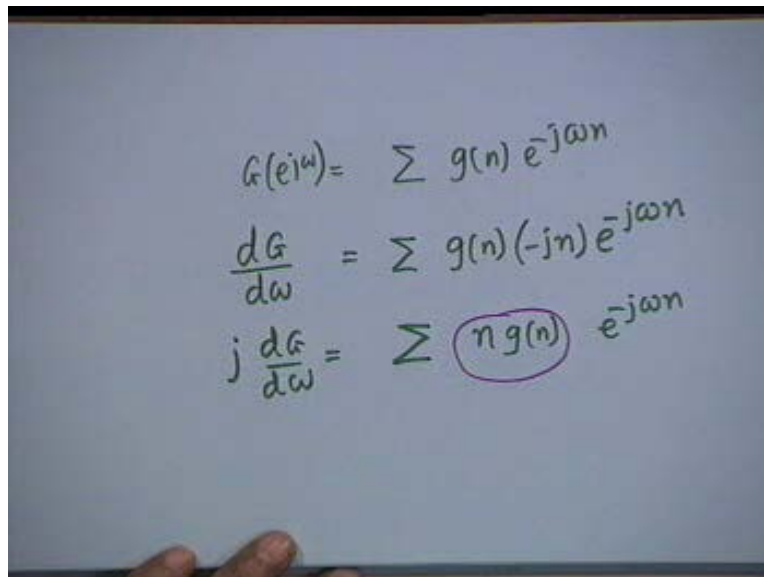 G(e^{jω}) = Σ g(n) e^{-jωn}
dG/dω = Σ g(n) (-jn) e^{-jωn}
j dG/dω = Σ n g(n) e^{-jωn}